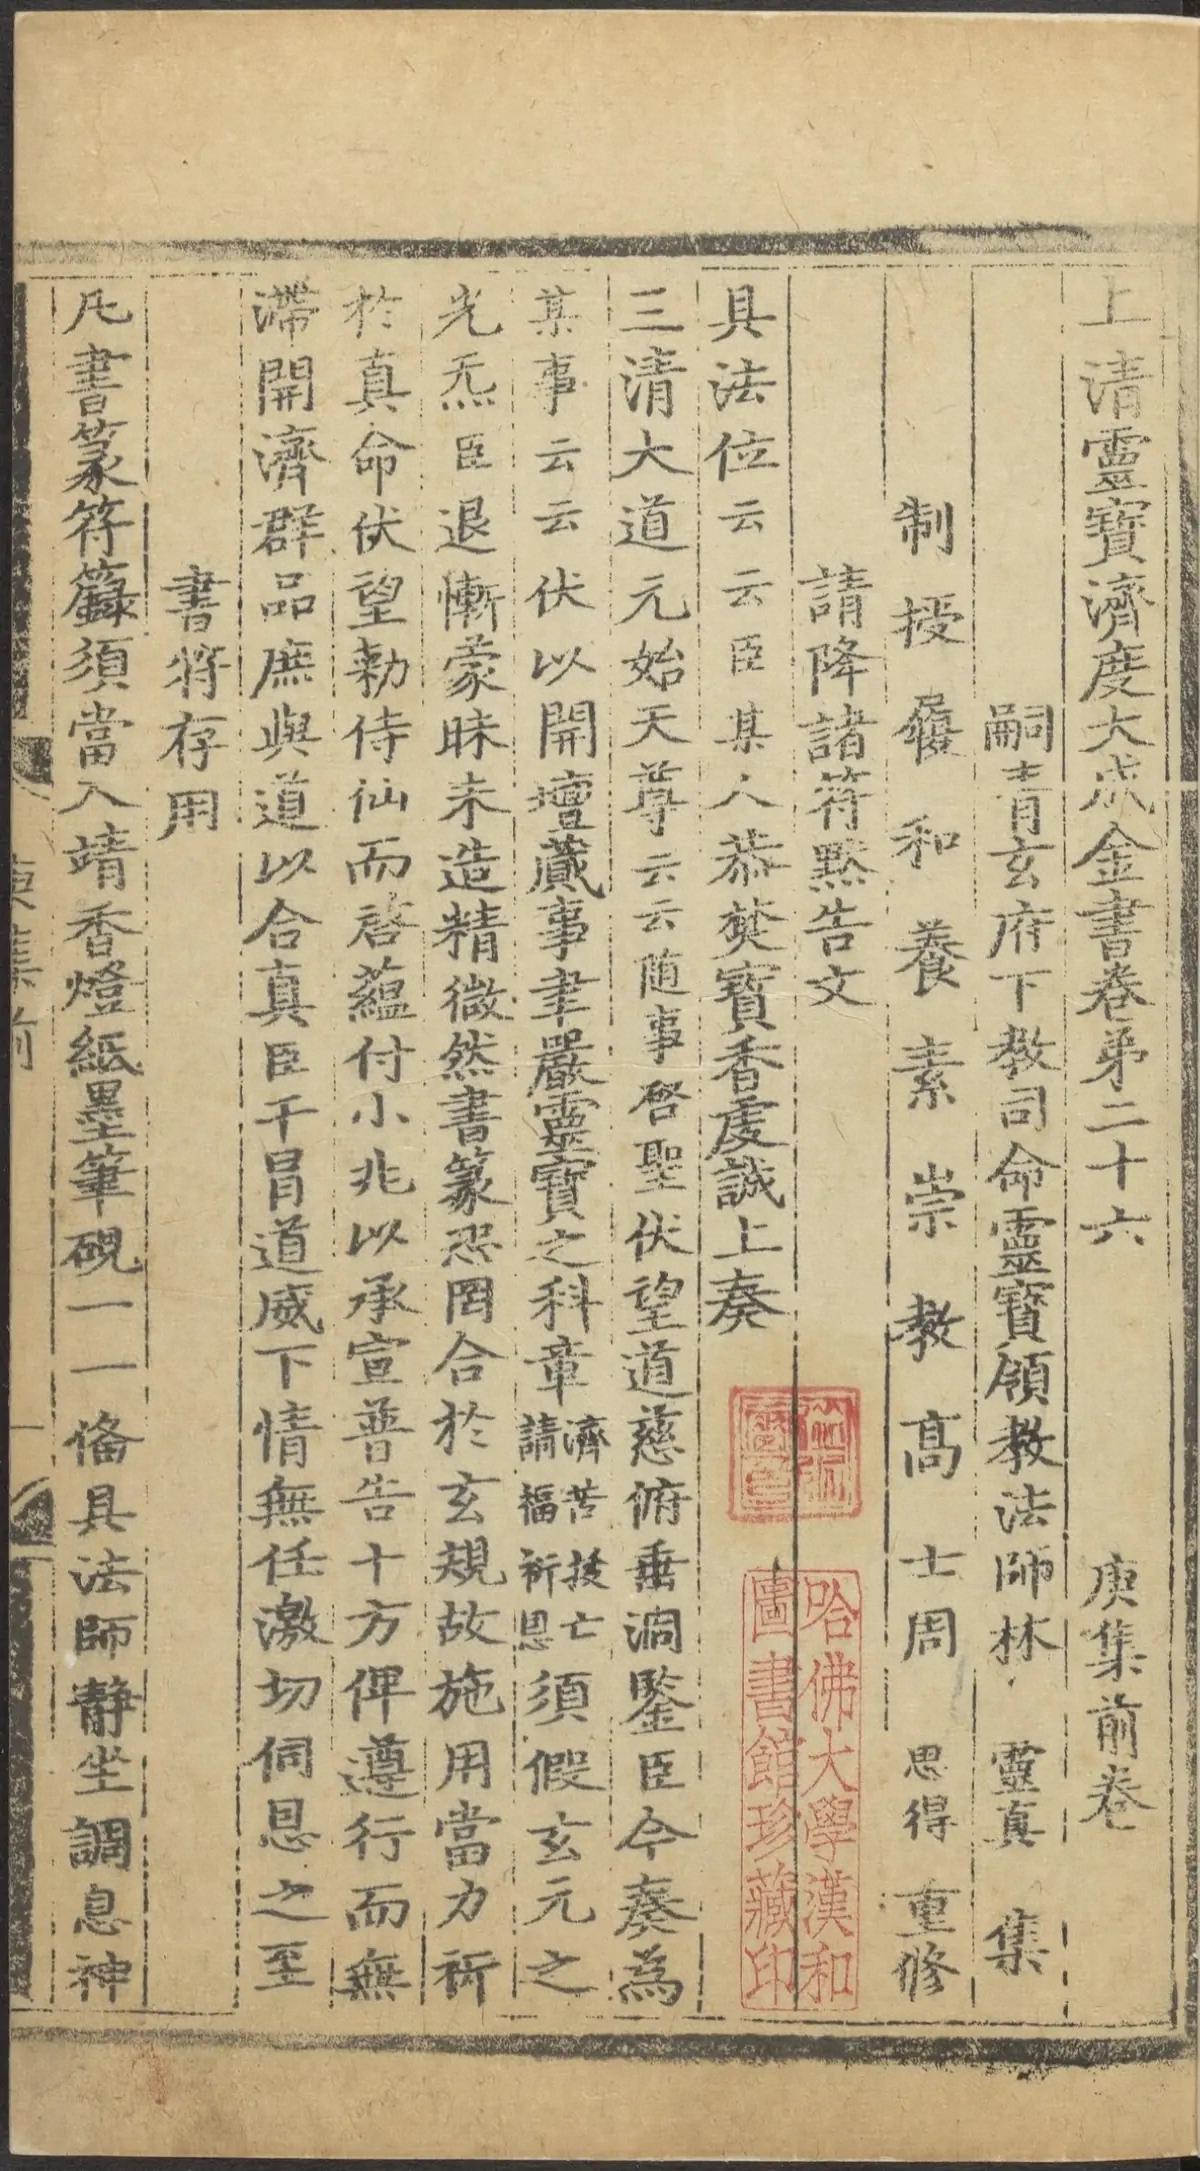 上清靈寶濟度大成金書卷弟二十六　庚集前卷
嗣青玄府下教司命靈寶領教法師林　靈真　集
制授履和養素崇教高士周　思得　重修
請降諸符黙告文
具法位云云臣某人恭焚寶香虔誠上奏
三清大道元始天尊云云随事啓聖伏望道慈俯垂洞鑒臣今奏為
某事云云伏以開壇蕆事聿嚴靈寶之科章濟苦拔亡請福祈恩須假玄元之
光炁臣退慚蒙昧未造精微然書篆恐罔合於玄規故施用當力祈
於真命伏望勑侍仙而啓蘊付小兆以承宣普告十方俾遵行而無
滯開濟群品庶與道以合真臣干冒道威下情無任激切伺恩之至
書符存用
凡書篆符籙須當入靖香燈紙墨筆硯一一俻具法師静坐調息神
庚集前
一
哈佛大學漢和
圖書館珍藏印